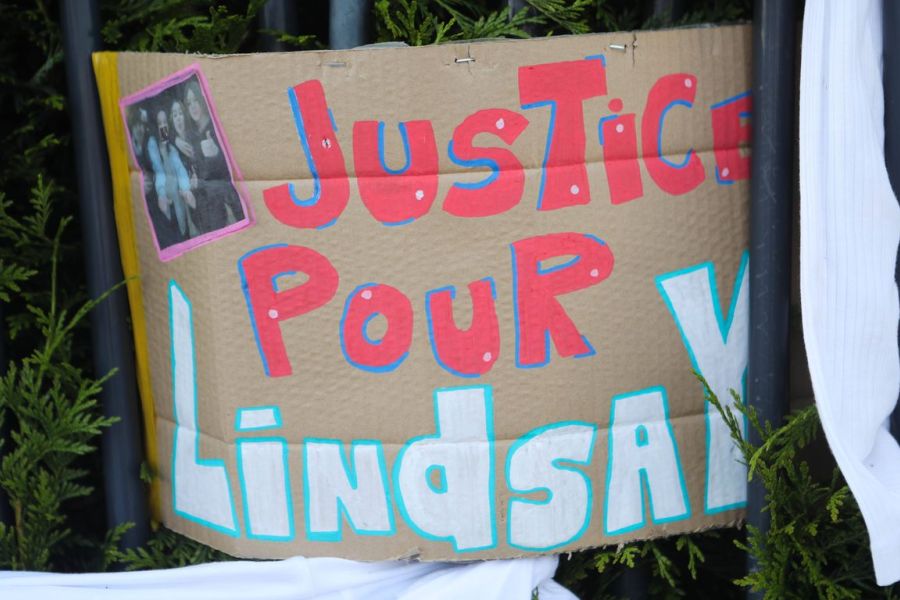 JUSTICE
POUR
LindsAY